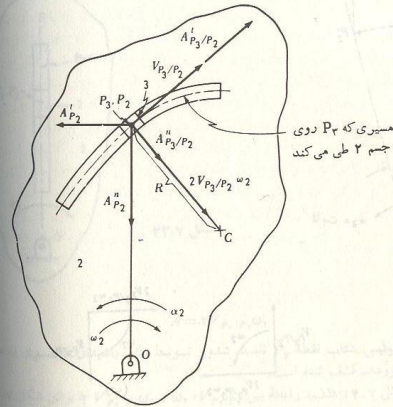 A^t_{P3/P2}
V_{P3/P2}
3
A^t_{P2}
P3, P2
A^n_{P3/P2}
مسیری که P۳ روی
جسم ۲ طی می‌کند
A^n_{P2}
R
2 V_{P3/P2} ω2
C
2
α2
ω2
O